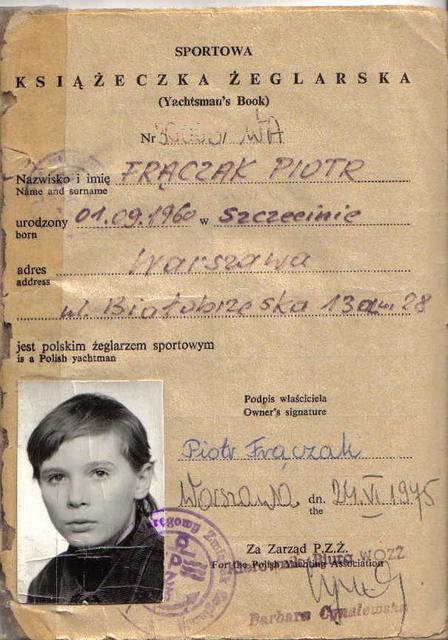 SPORTOWA
KSIĄŻECZKA ŻEGLARSKA
(Yachtsman's Book)
Nr WA
Nazwisko i imię FRĄCZAK PIOTR
Name and surname
urodzony 01.09.1960 w Szczecinie
born
adres Warszawa
address
ul. Białobrzeska 13 m 28
jest polskim żeglarzem sportowym
is a Polish yachtman
Podpis właściciela
Owner's signature
Piotr Frączak
Warszawa dn. 24.VI 1975
the
Za Zarząd P.Z.Ż.
For the Polish Yachting Association
Biuro WOZŻ
Barbara Cynalewska